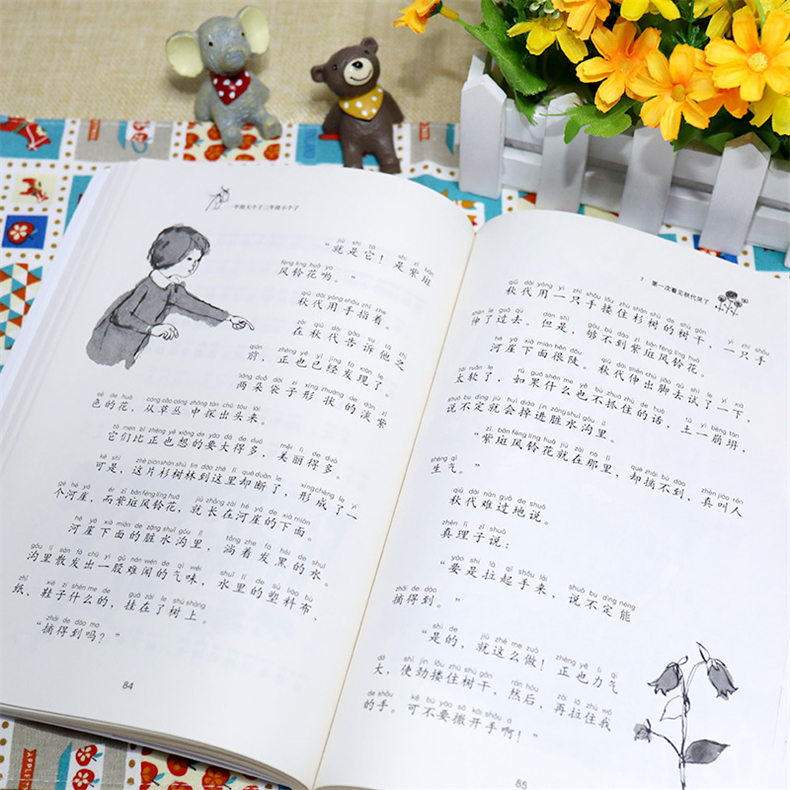 一年级大个子二年级小个子
“就是它！是紫斑
风铃花哟。”
秋代用手指着。
在秋代告诉他之
前，正也已经发现了。
两朵袋子形状的淡紫
色的花，从草丛中探出头来。
它们比正也想的要大得多，美丽得多。
可是，这片杉树林到这里却断了，形成了一
个河崖，而紫斑风铃花，就长在河崖的下面。
河崖下面的脏水沟里，淌着发黑的水。
沟里散发出一股难闻的气味，水里的塑料布、
纸、鞋子什么的，挂在了树上。
“摘得到吗？”
84
7 第一次看见秋代哭了
秋代用一只手搂住杉树的树干，一只手
伸了过去。但是，够不到紫斑风铃花。
河崖下面很陡。秋代伸出脚去试了一下，
太软了，如果什么也不抓住的话，土一崩坍，
说不定就会掉进脏水沟里。
“紫斑风铃花就在那里，却摘不到，真叫人
生气。”
秋代难过地说。
真理子说：
“要是拉起手来，说不定能
摘得到。”
“是的，就这么做！正也力气
大，使劲搂住树干，然后，再拉住我
的手。可不要撒开手啊！”
85